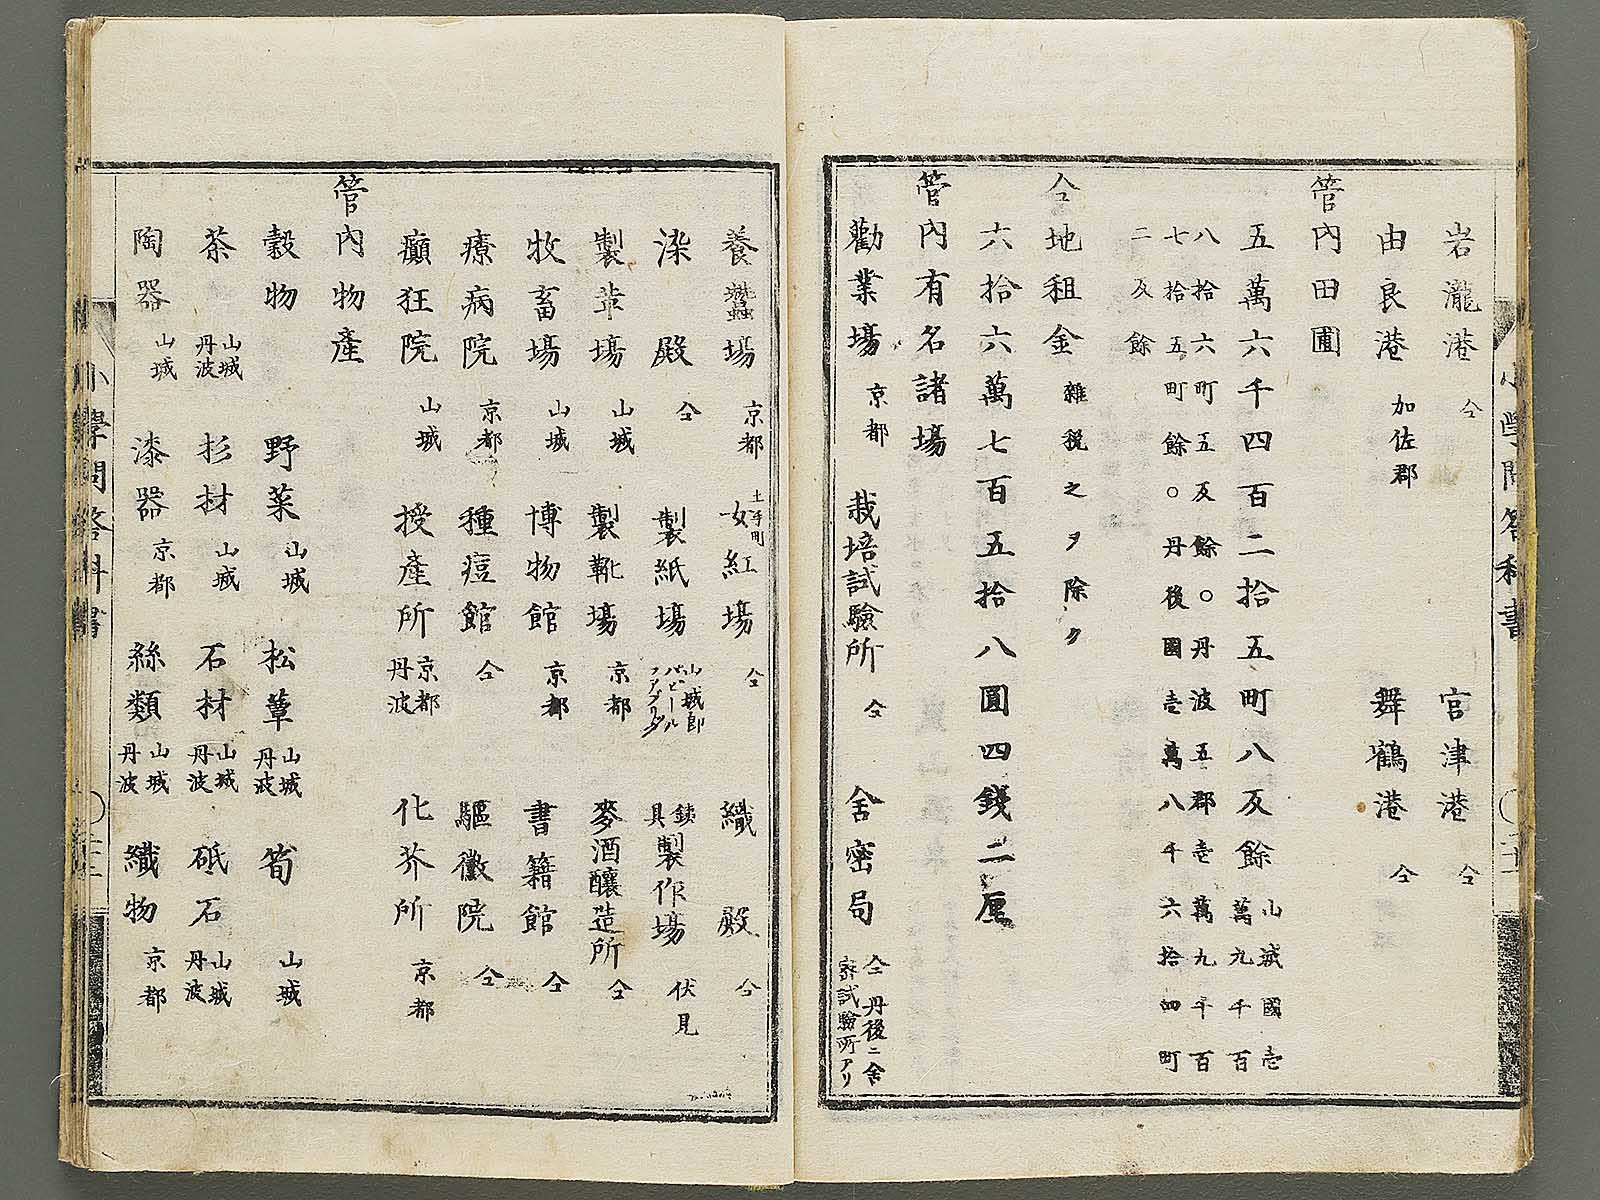 岩瀧港 仝 宮津港 仝
由良港 加佐郡 舞鶴港 仝
管內田圃
五萬六千四百二拾五町八反餘 山城國壱萬九千百
八拾六町五反餘○丹波五郡壱萬九千百
七拾五町餘○丹後國壱萬八千六拾四町
二反餘
仝地租金 雜税之ヲ除ク
六拾六萬七百五拾八圓四錢二厘
管內有名諸塲
勸業塲 京都 栽培試驗所 仝 舍密局 仝丹後ニ舍密試驗所アリ
養蠶塲 京都 女紅塲 仝 織殿 仝
染殿 仝 製紙塲 山城郎パピールファブリク 銕具製作塲 伏見
製革塲 山城 製靴塲 京都 麥酒釀造所 仝
牧畜塲 山城 博物館 京都 書籍館 仝
療病院 京都 種痘館 仝 驅黴院 仝
癲狂院 山城 授產所 京都丹波 化芥所 京都
管內物產
穀物 野菜 山城 松蕈 山城丹波 筍 山城
茶 山城丹波 杉材 山城 石材 山城丹波 砥石 山城丹波
陶器 山城 漆器 京都 絲類 山城丹波 織物 京都
小學問答科書